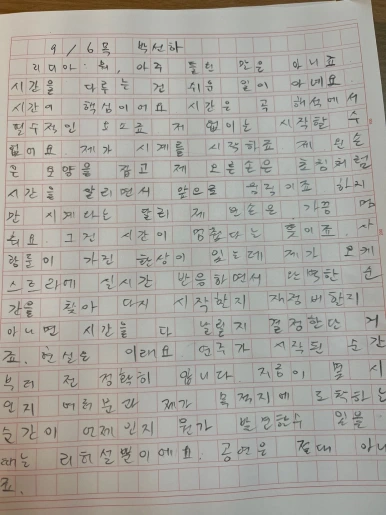 9/6목 박선하
리디아: 뭐, 아주 틀린 말은 아니죠
시간을 다루는 건 쉬운 일이 아녜요
시간이 핵심이에요 시간은 곡 해석에서
필수적인 요소죠 저 없이는 시작할 수
없어요. 제가 시계를 시작하죠 제 왼손
은 모양을 잡고 제 오른손은 초침처럼
시간을 알리면서 앞으로 움직이죠 하지
만 시계와는 달리 제 손은 가끔 멈
춰요. 그건 시간이 멈췄다는 뜻이죠. 사
람들이 가진 환상이 있는데 제가 오케
스트라에 실시간 반응하면서 완벽한 순
간을 찾아 다시 시작한지 재정비한지
아니면 시간을 다 날릴지 결정한단 거
죠. 현실은 이래요 연주가 시작된 순간
부터 전 정확히 압니다 지금이 몇 시
인지 여러분과 제가 목적지에 도착하는
순간이 언제인지 뭔가 발견할수 있을
때는 리허설뿐이에요. 공연은 절대 아니
죠.